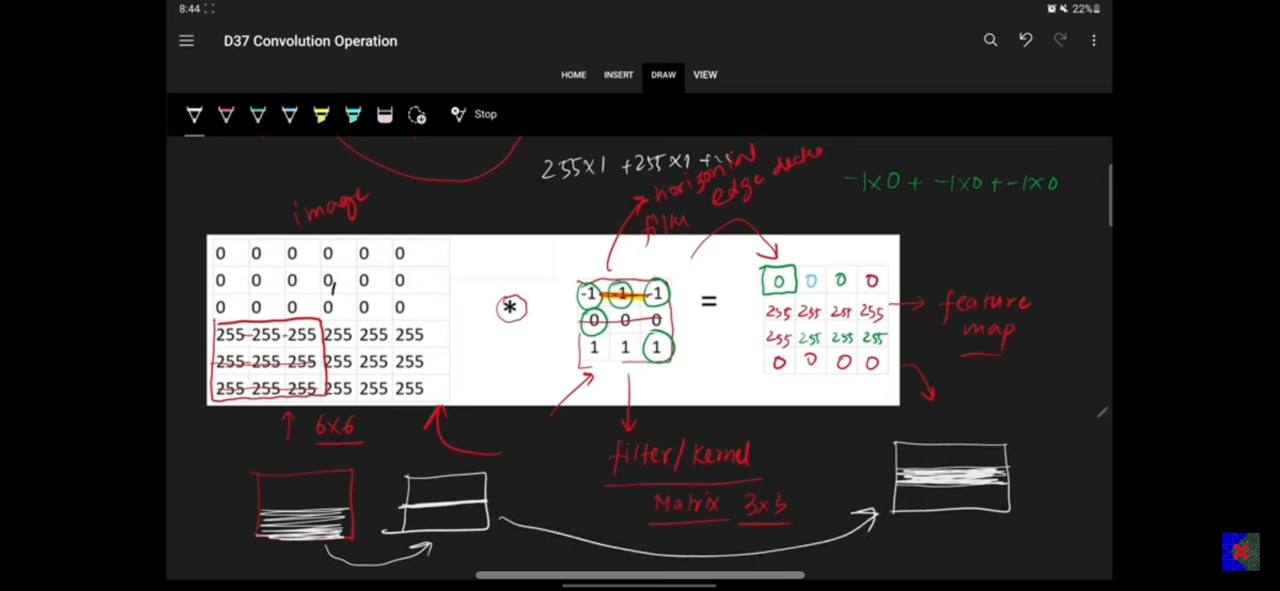 8:44
22%
D37 Convolution Operation
HOME INSERT DRAW VIEW
Stop
255x1 +255x1 +25
horizontal
edge
filter
-1x0 + -1x0 + -1x0
image
0 0 0 0 0 0
0 0 0 0, 0 0
0 0 0 0 0 0
255 255 255 255 255 255
255 255 255 255 255 255
255 255 255 255 255 255
*
-1 -1 -1
0 0 0
1 1 1
=
0 0 0 0
255 255 255 255
255 255 255 255
0 0 0 0
feature
map
6x6
filter/Kernel
Matrix 3x3